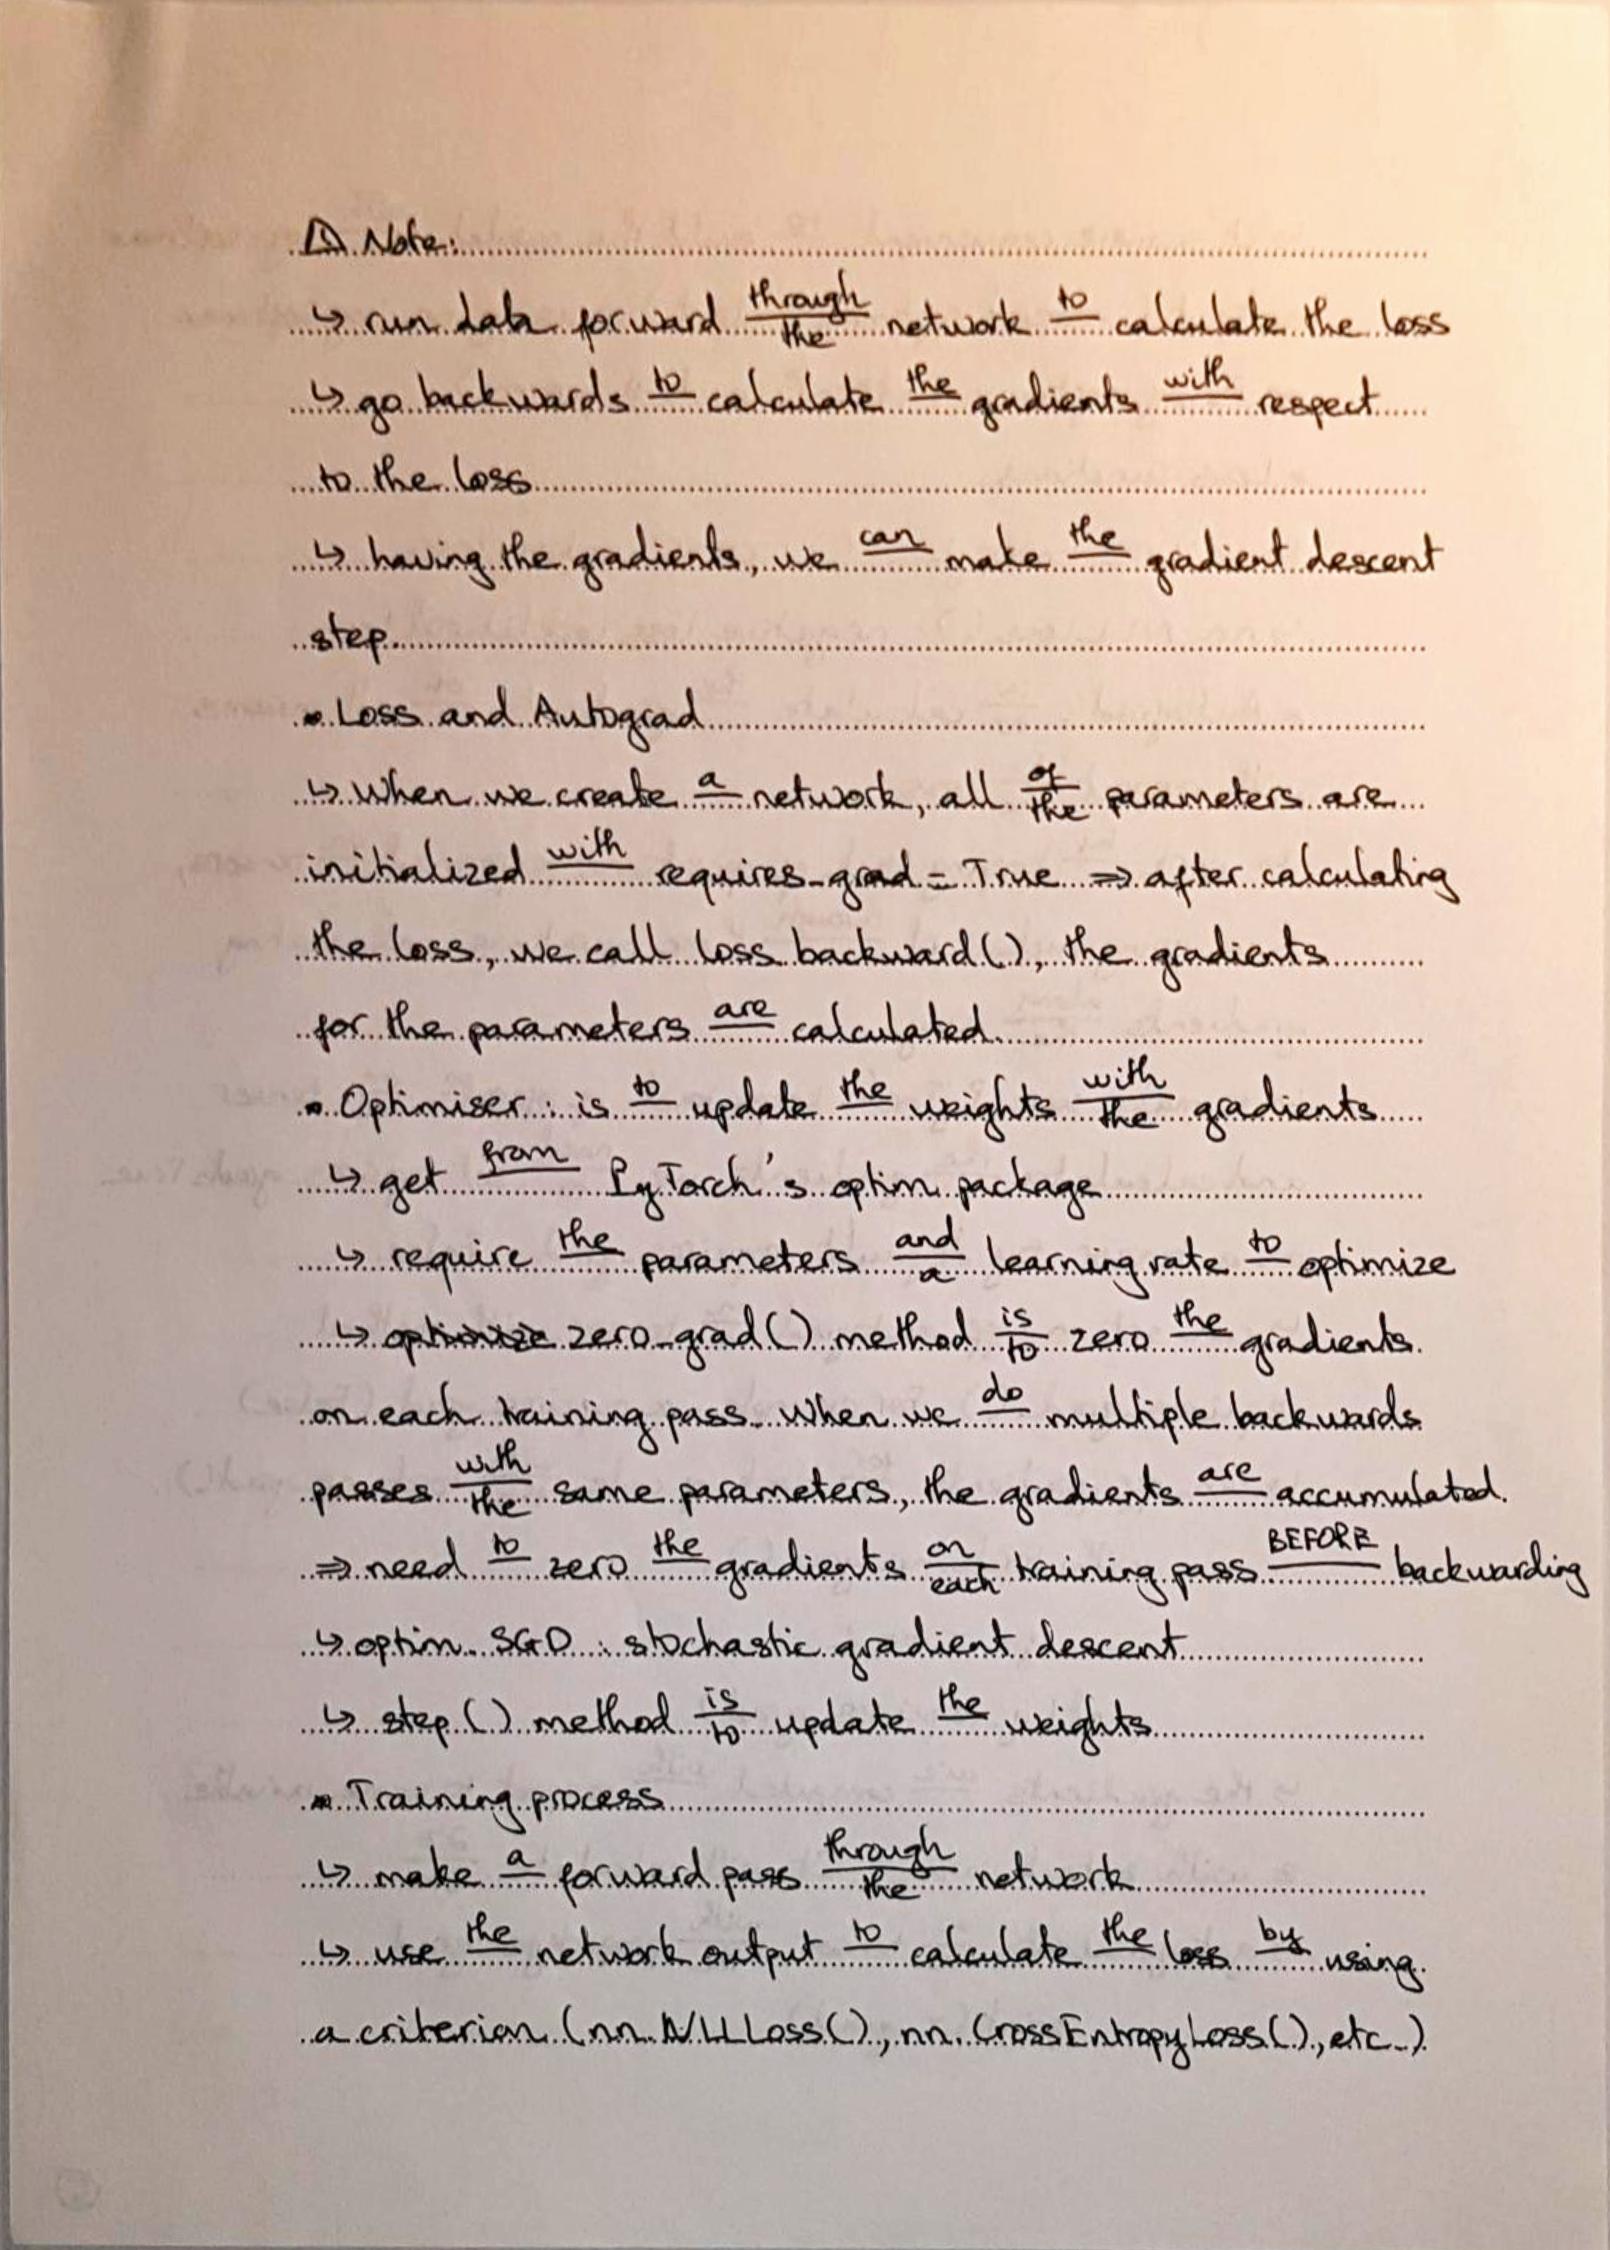 ⚠ Note:
↳ run data forward through the network to calculate the loss
↳ go backwards to calculate the gradients with respect
to the loss
↳ having the gradients, we can make the gradient descent
step.
Loss and Autograd
↳ When we create a network, all of the parameters are
initialized with requires_grad = True ⇒ after calculating
the loss, we call loss backward(), the gradients
for the parameters are calculated.
Optimiser : is to update the weights with the gradients
↳ get from PyTorch's optim package
↳ require the parameters and a learning rate to optimize
↳ zero_grad() method is to zero the gradients
on each training pass. When we do multiple backwards
passes with the same parameters, the gradients are accumulated.
⇒ need to zero the gradients on each training pass BEFORE backwarding
↳ optim. SGD : stochastic gradient descent
↳ step () method is to update the weights
Training process
↳ make a forward pass through the network
↳ use the network output to calculate the loss by using
a criterion (nn.NLLLoss(), nn.CrossEntropyLoss(), etc..)